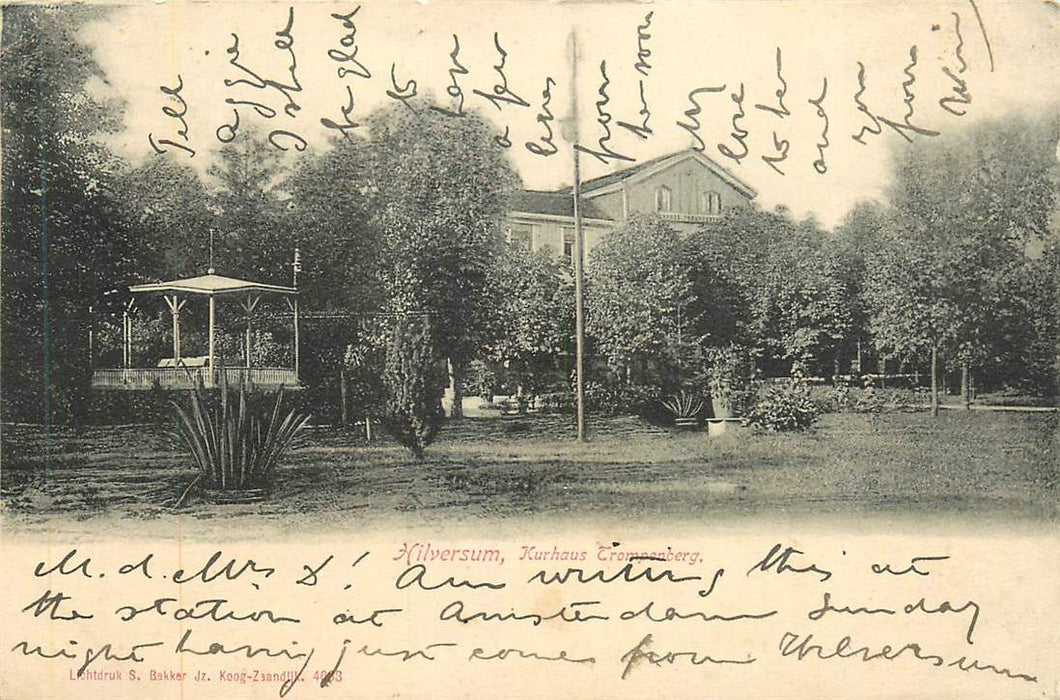 Tell
aggie
I shall
be glad
to
hear
a few
lines
from
her. My
love
to her
and
you
from
Wini
Hilversum, Kurhaus Trompenberg.
M. d. Mrs S! Am writing this at
the station at Amsterdam Sunday
night having just come from Hilversum
Lichtdruk S. Bakker Jz. Koog-Zaandijk. 4063